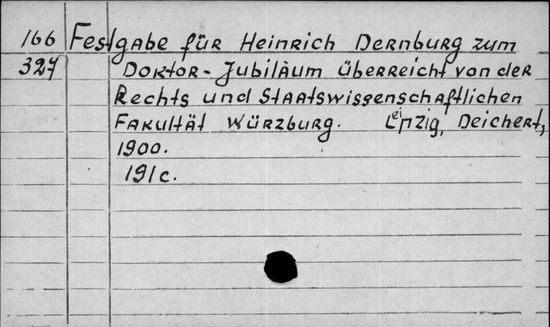 166 Festgabe für Heinrich Dernburg zum
327 Doktor-Jubiläum überreicht von der
Rechts und Staatswissenschaftlichen
Fakultät Würzburg. Leipzig, Deichert,
1900.
191 c.